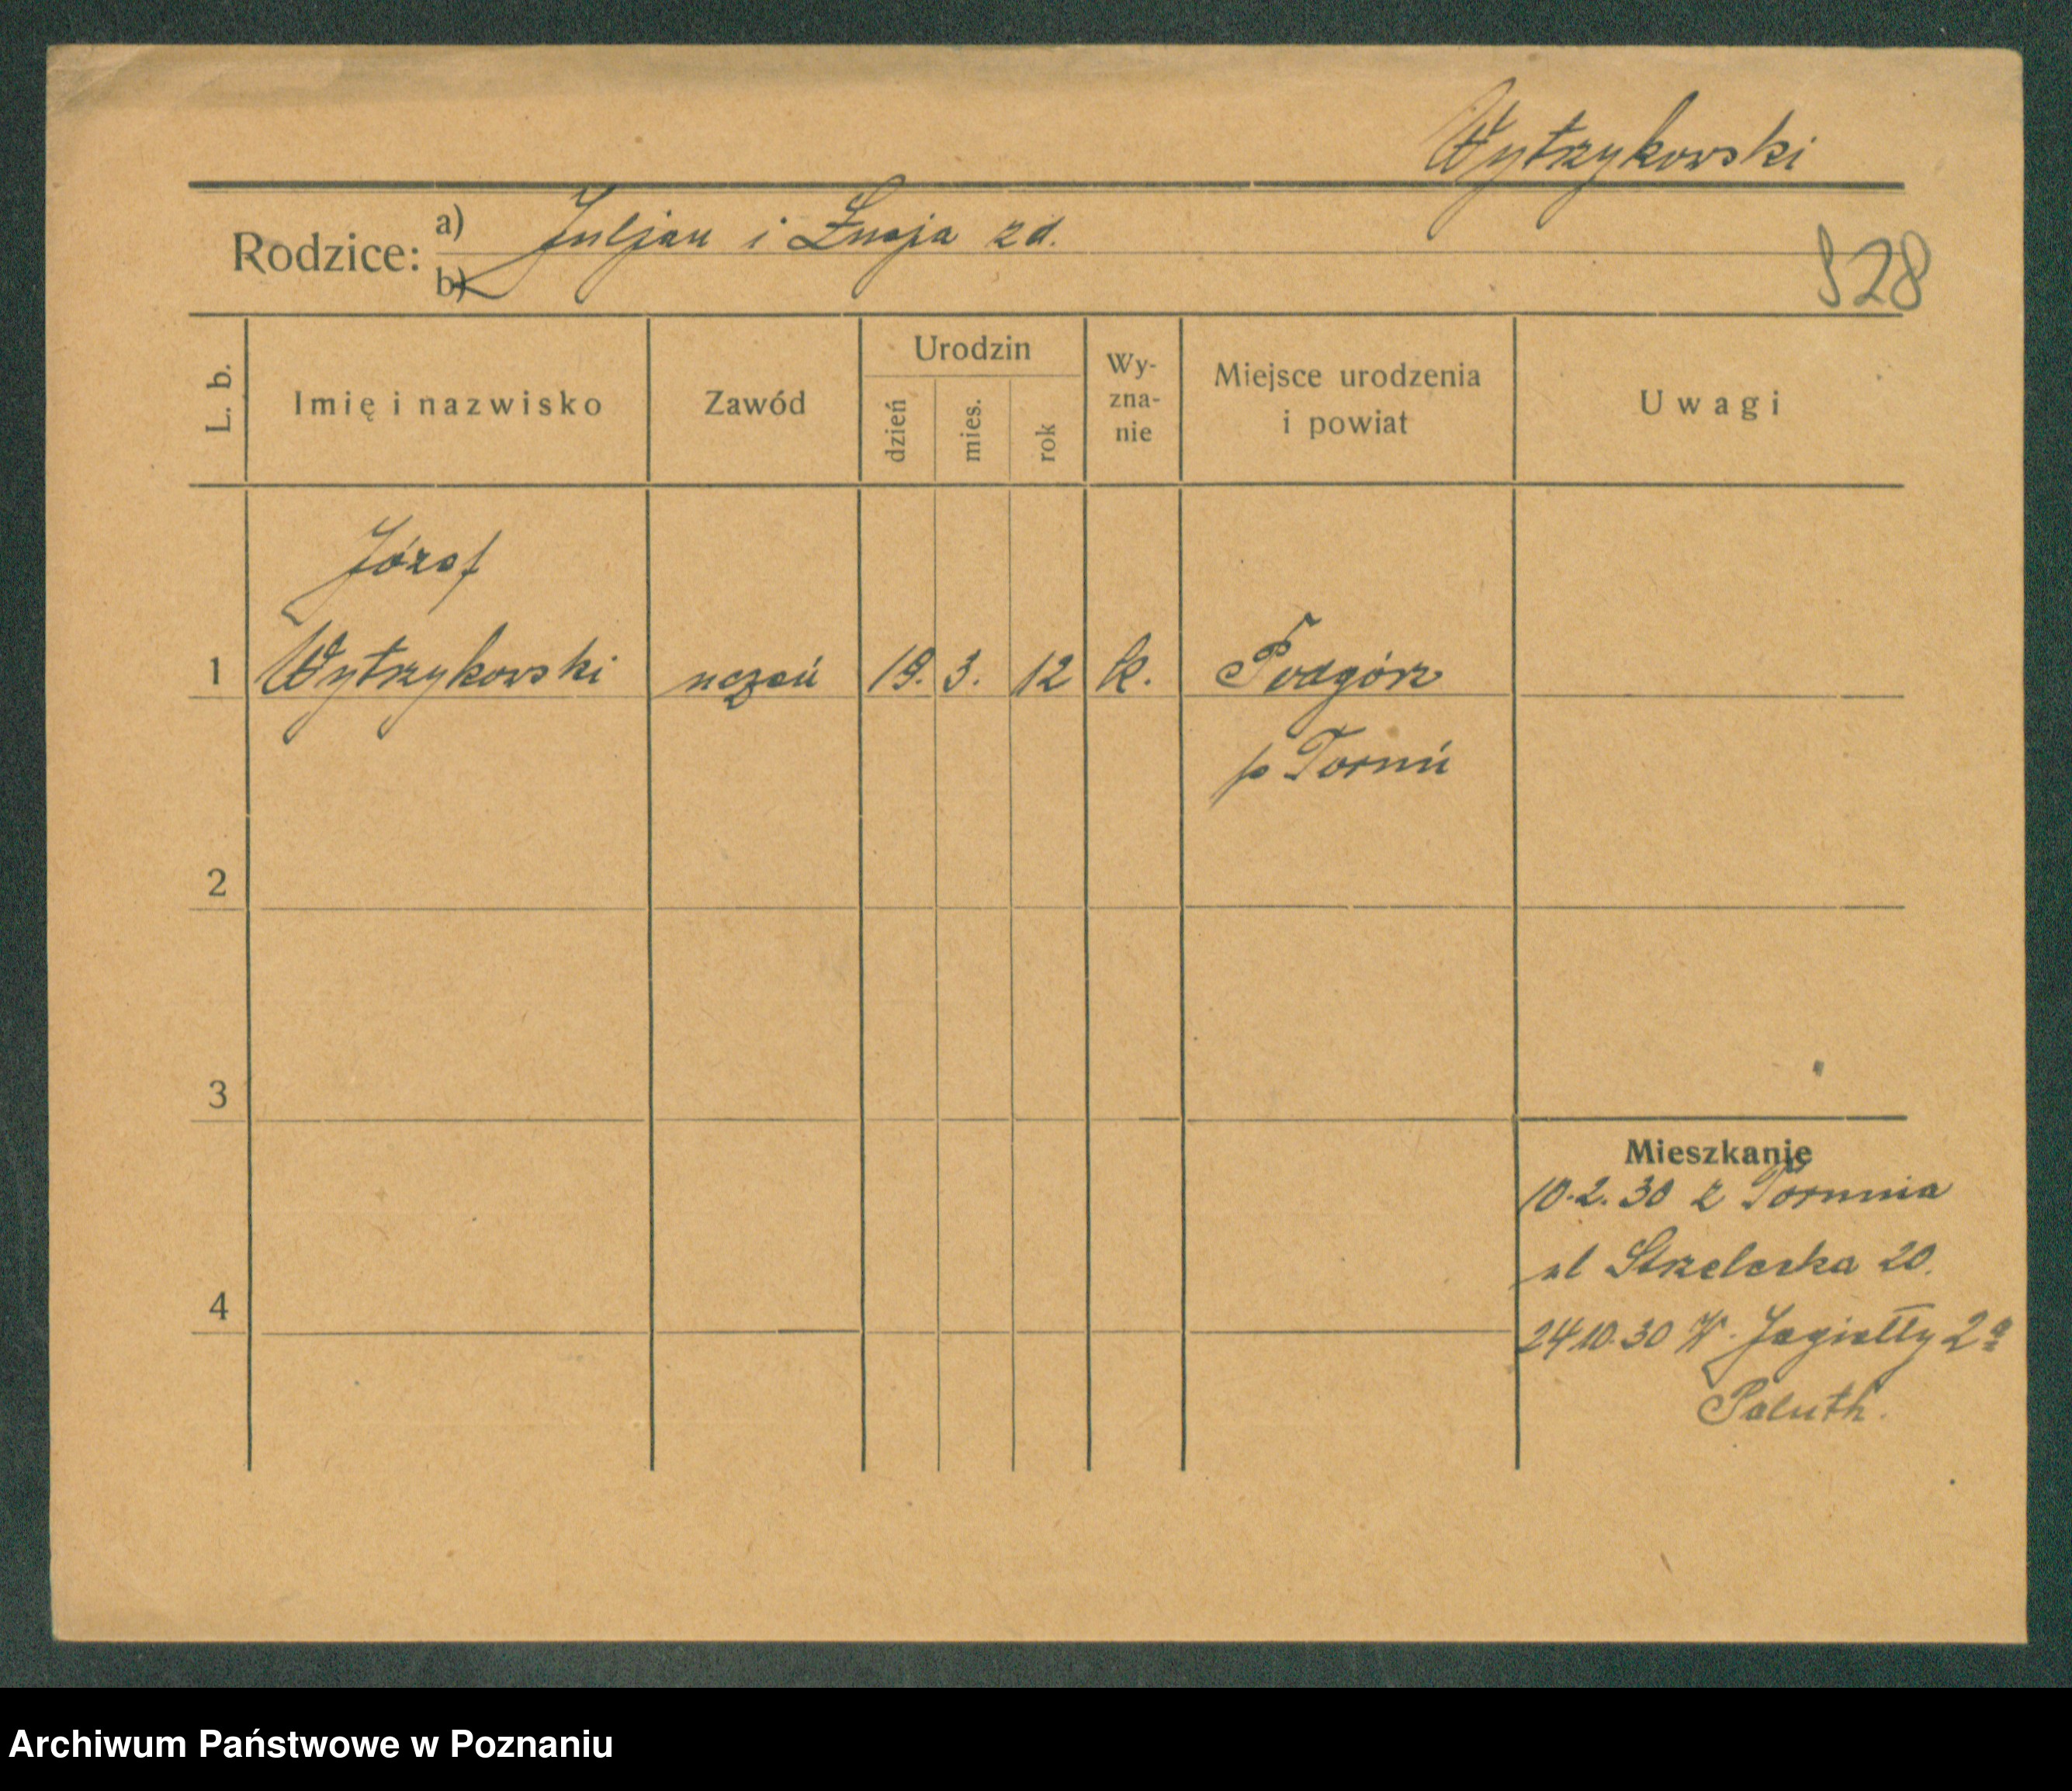 Wytrzykowski
Rodzice: a) Juljan i Łucja zd.
b)
828
L. b. Imię i nazwisko Zawód Urodzin dzień mies. rok Wy-zna-nie Miejsce urodzenia i powiat Uwagi
Józef
1 Wytrzykowski uczeń 19. 3. 12 k. Podgórz
p Toruń
2
3
Mieszkanie
10.2.30 z Torunia
ul Strzelecka 20.
4
24 10.30 W. Jagiełły 2a
Paluth.
Archiwum Państwowe w Poznaniu